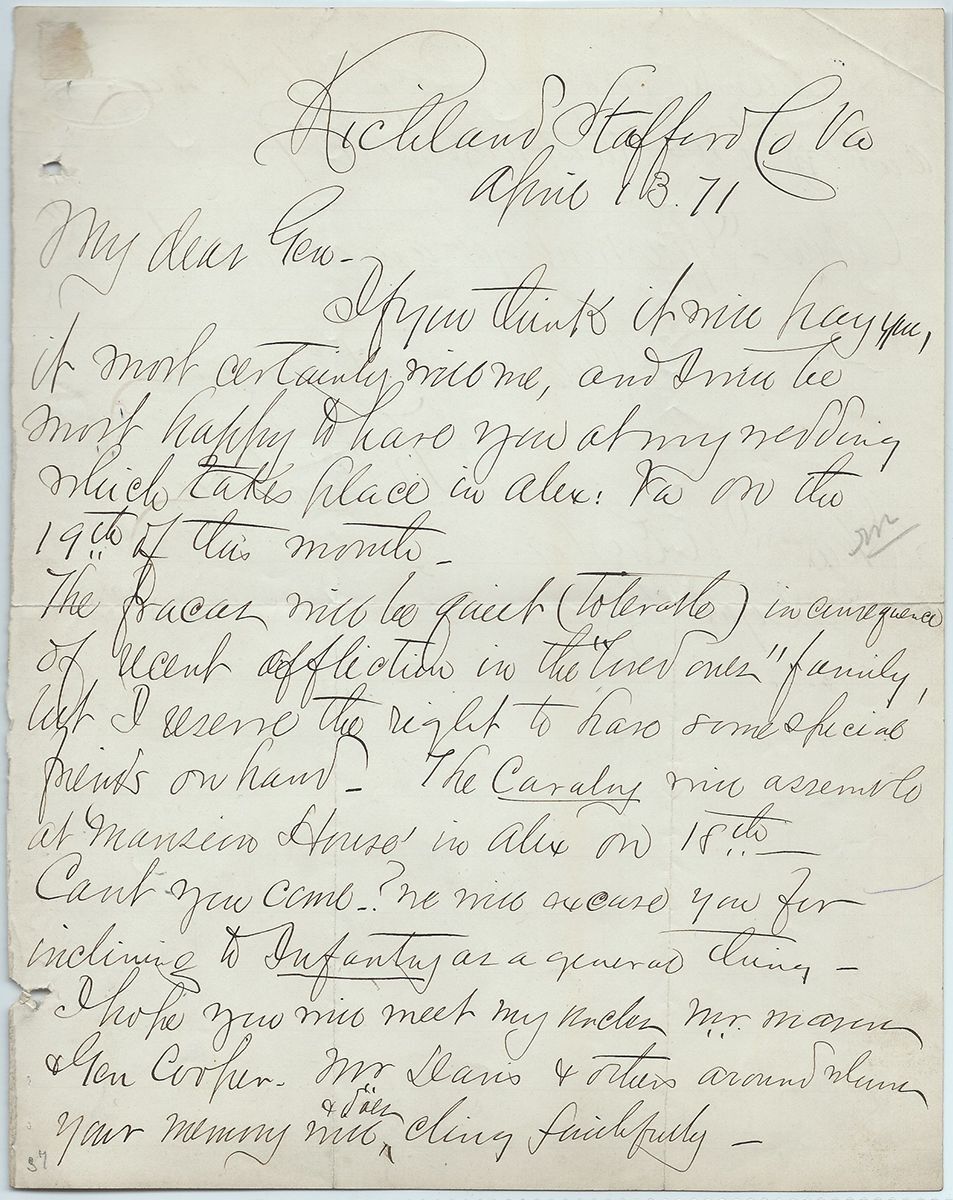 Richland Stafford Co Va
April 13. 71
My dear Gen-
If you think it will pay you,
it most certainly will me, and I will be
most happy to have you at my wedding
which takes place in Alex: Va on the
19th of this month_
The fracas will be quiet (tolerable) in consequence
of recent affliction in the "loved ones" family,
but I reserve the right to have some special
friends on hand_ The Cavalry will assemble
at Mansion House in Alex on 18th_
Cant you come_? We will excuse you for
inclining to Infantry as a general thing_
I hope you will meet my uncles Mr. Mason
& Gen Cooper_ Mr Davis & others around whom
& does
your memory will, cling faithfully_